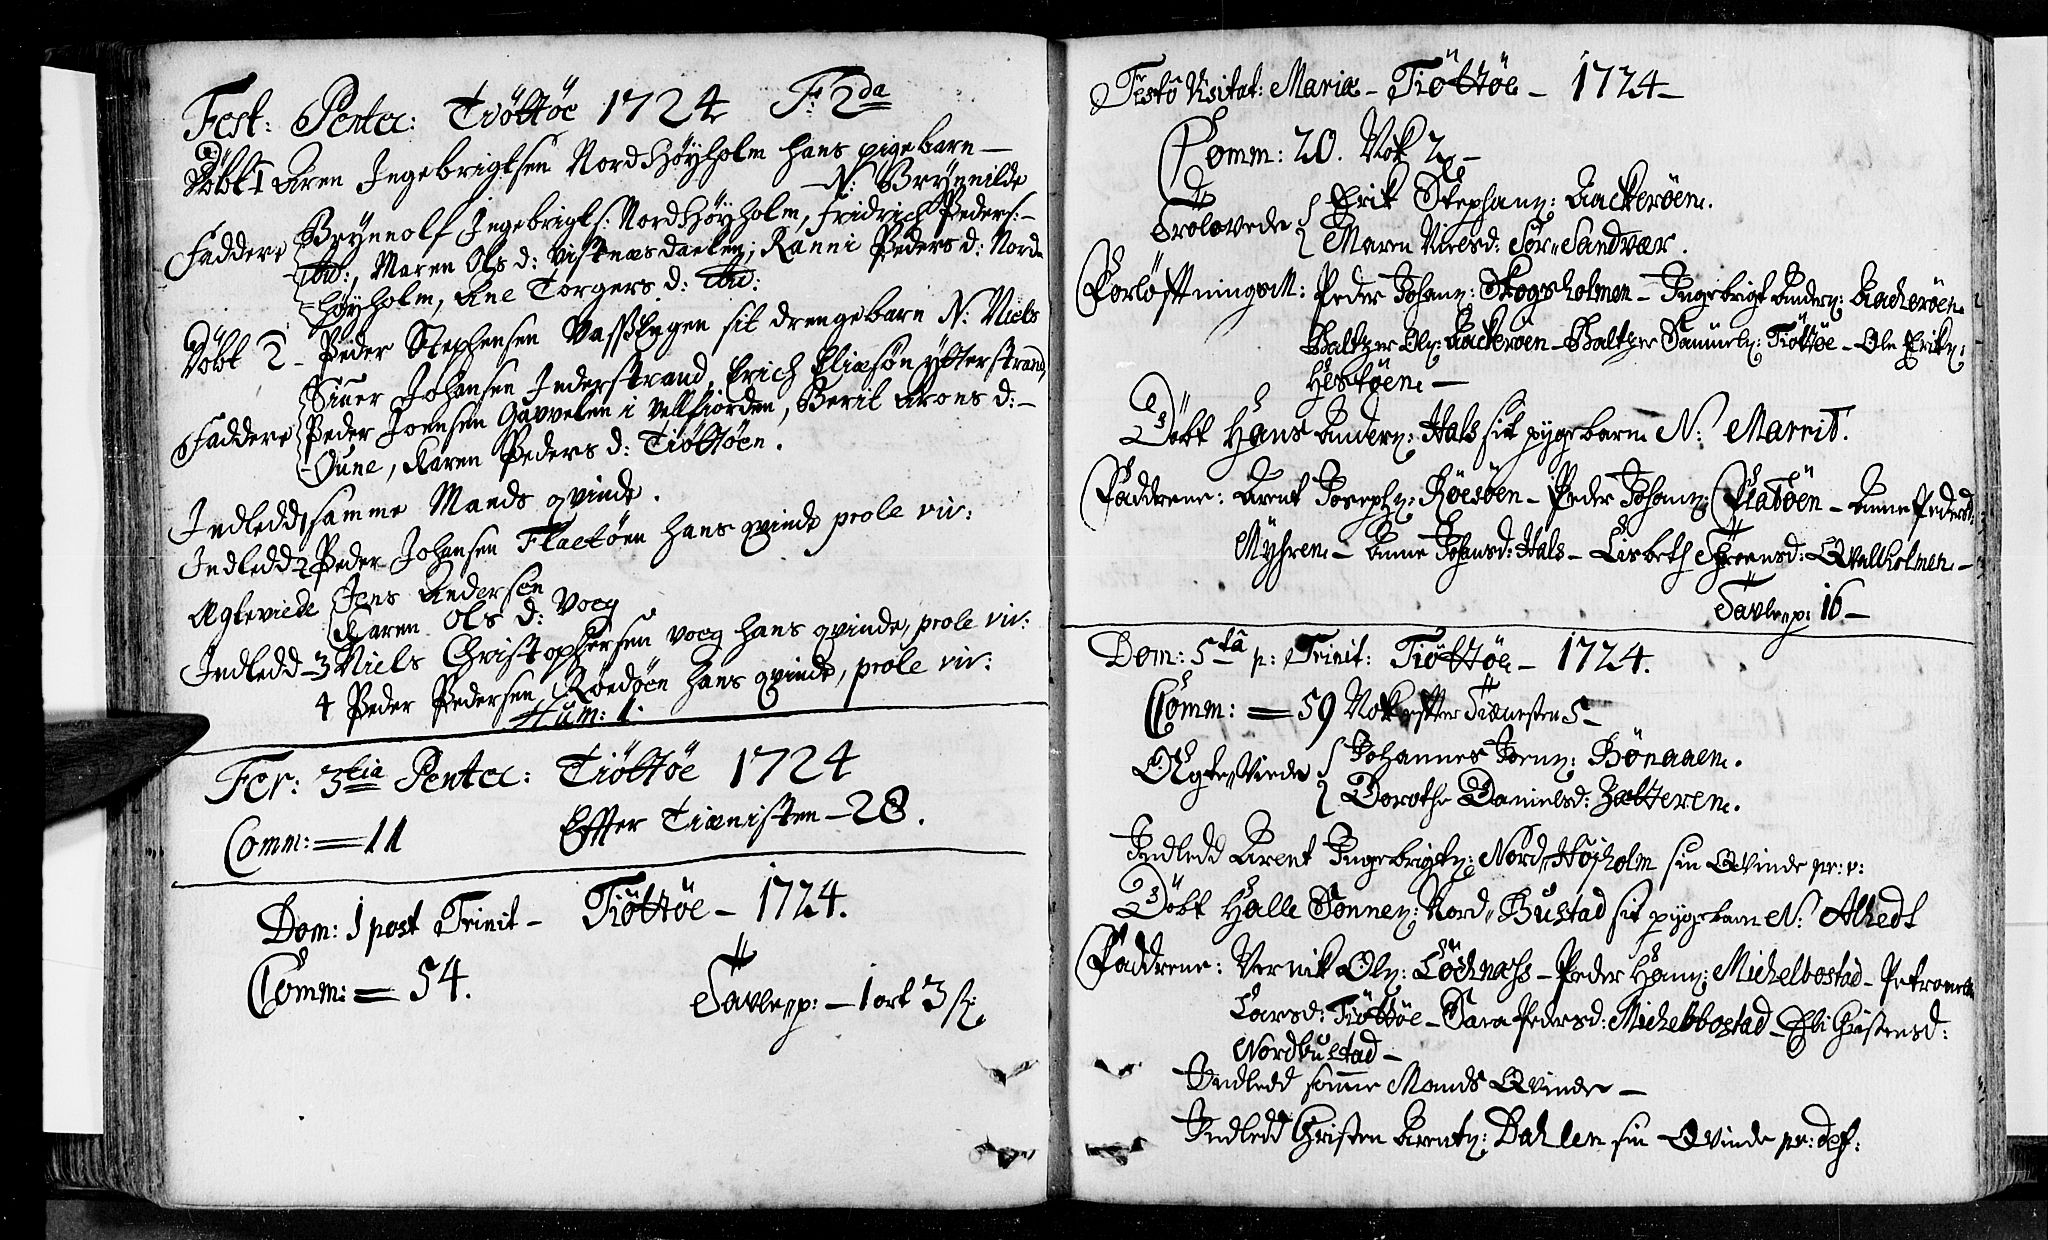 Fest: Pentec: Tiöttöe 1724 F: 2da
Döbt 1 Aren Ingebrigtsen Nord Höyholm hans pigebarn —
N: Brÿnnilde
Faddere Brÿnnolf Ingebrigts: Nord Höyholm, Fridrich Peders: –
ibid:, Maren Ols d: Vistnæsdaelen; Ranni Peders d: Nord
höyholm, Ane Torgers d: ibid:
Döbt 2 – Peder Stephensen Vassengen sit drengebarn N: Niels
Siuer Johansen Inderstrand, Erich Eliæsön Ytterstrand,
Faddere Peder Joensen Gavvelen i Velfiorden, Berit Arons d: –
Oune, Karen Peders d: Tiöttöen.
Indledd 1 samme Mands qvinde.
Indledd 2 Peder Johansen Flaetöen hans qvinde prole viv:
Ægteviede Jens Andersen
Karen Ols d: Voeg
Indledd – 3 Niels Christophersen Voeg hans qvinde, prole viv:
4 Peder Pedersen Röedöen hans qvinde, prole viv:
Hum: 1.
Fer: 3tia Pentec: Tiöttöe 1724
Comm: = 11 Effter Tiænisten – 28.
Dom: 1 post Trinit – Tiöttöe – 1724.
Comm: = 54.
Tavlep: – 1 ort 3 sk:
Festo Visitat: Mariæ – Tiöttöe – 1724 –
Comm: 20. Nok 2 –
Trolovede Erik Stephanz: Aackeröen.
Maren Nielsd: Sör-Sandvær.
Forlöftningsm: Peder Johanz: Skogsholmen – Ingebrigt Anderz: Aackeröen
Baltzer Olz: Aackeröen – Baltzer Samuelz: Tiöttöe – Ole Erikz:
Hestöen –
Döbt Hans Anderz: Hals sit pygebarn N: Marrit.
Faddrene: Arent Josephz: Röesöen – Peder Johanz: Flatöen – Anne Pedersd:
Myhren – Anne Johansd: Hals – Lisbeth Iffverensd: Qvalholmen –
Tavlep: 16 –
Dom: 5ta p: Trinit: Tiöttöe – 1724.
Comm: = 59 Nok effter Tiænesten 5 –
Ægte Viede Johannes Joenz: Bönaaen.
Dorothe Danielsd: Zætteren.
Indledd Arent Ingebrigtz: Nord Höjholm sin Qvinde pr: v:
Döbt Halle Tönnez: Nord-Bustad sit pygebarn N: Alhedt
Faddrene: Vernik Olz: Löchnæss – Peder Hanz: Michelbostad – Petronelle
Larsd: Tiöttöe – Sara Pedersd: Michelbostad – Ebi Christensd:
Nordbustad –
Indledd somme Mands Qvinde –
Indledd Christen Arentz: Dahlen sin Qvinde pr: def: